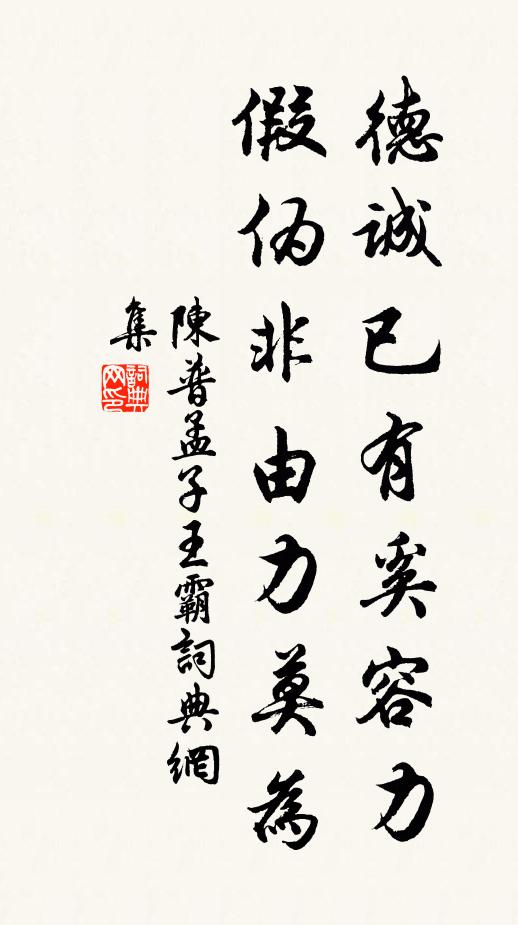 德誠已有奚容力
假偽非由力莫為
陳普孟子王霸詞典網
集
詞典
网印